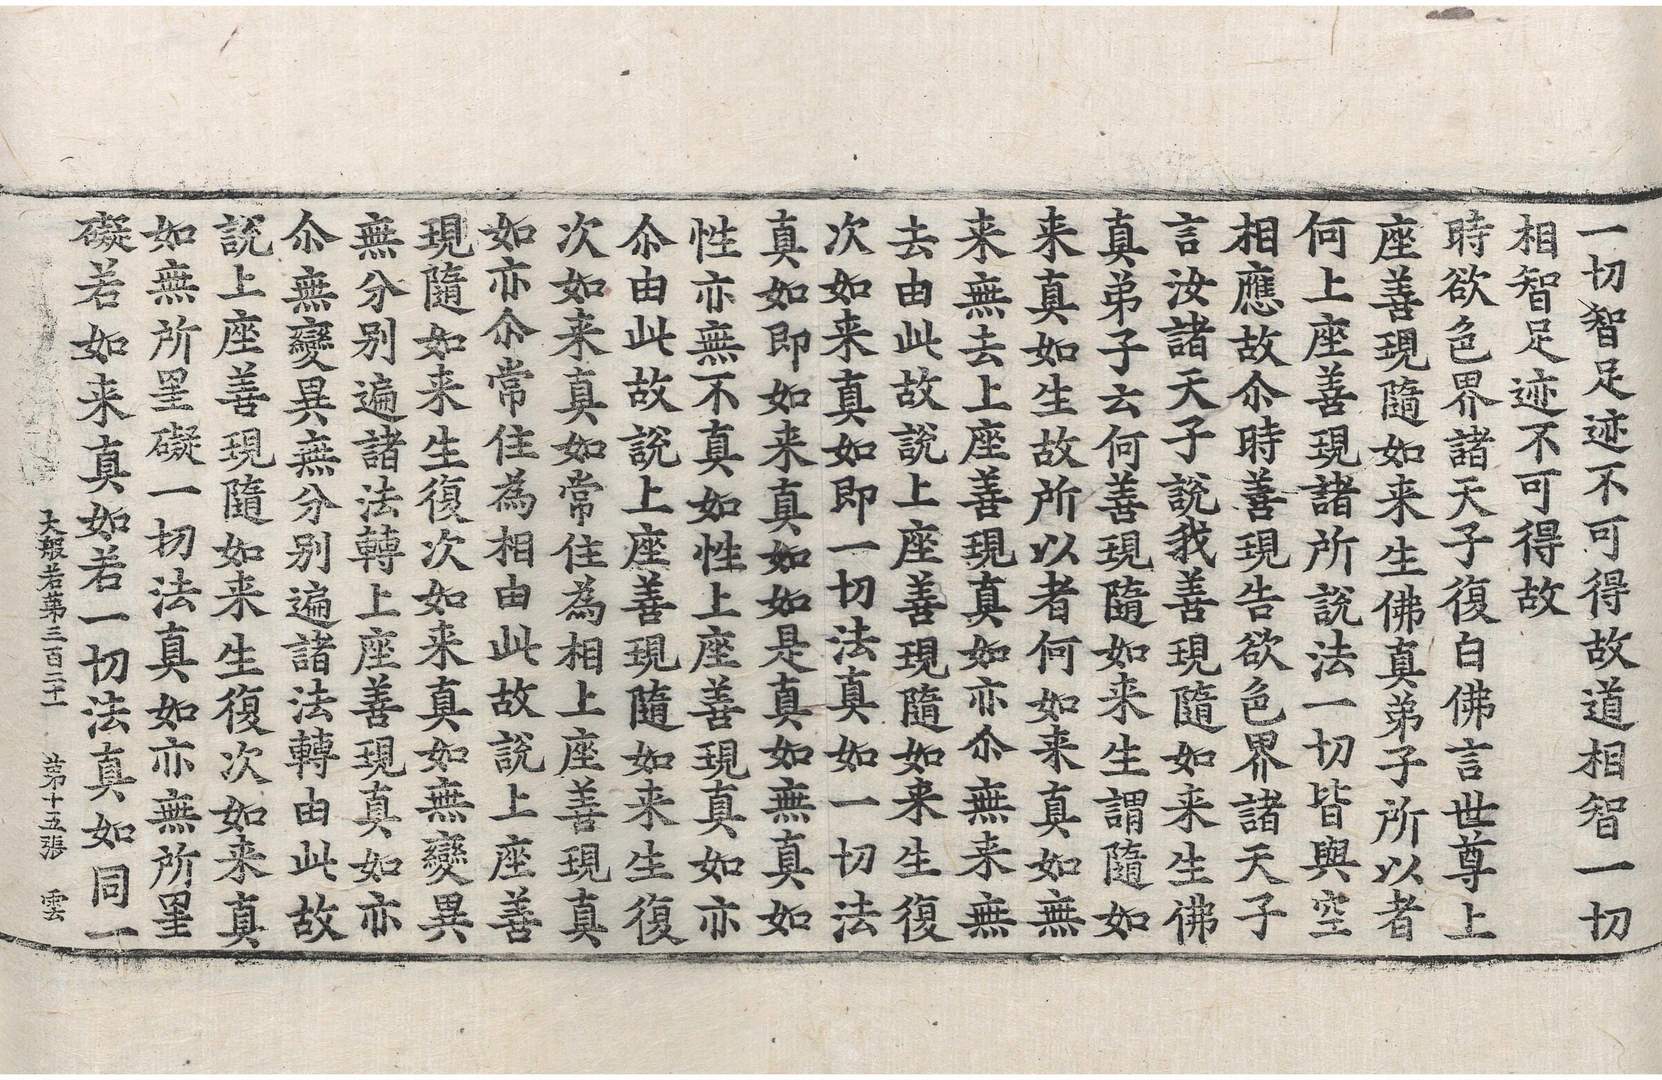 一切智足迹不可得故道相智一切
相智足迹不可得故
時欲色界諸天子復白佛言世尊上
座善現隨如来生佛真弟子所以者
何上座善現諸所說法一切皆與空
相應故尒時善現告欲色界諸天子
言汝諸天子說我善現隨如来生佛
真弟子云何善現隨如来生謂隨如
来真如生故所以者何如来真如無
来無去上座善現真如亦尒無来無
去由此故說上座善現隨如来生復
次如来真如即一切法真如一切法
真如即如来真如如是真如無真如
性亦無不真如性上座善現真如亦
尒由此故說上座善現隨如来生復
次如来真如常住為相上座善現真
如亦尒常住為相由此故說上座善
現隨如来生復次如来真如無變異
無分别遍諸法轉上座善現真如亦
尒無變異無分别遍諸法轉由此故
說上座善現隨如来生復次如来真
如無所罣礙一切法真如亦無所罣
礙若如来真如若一切法真如同一
大般若第三百二十一 第十五張 雲